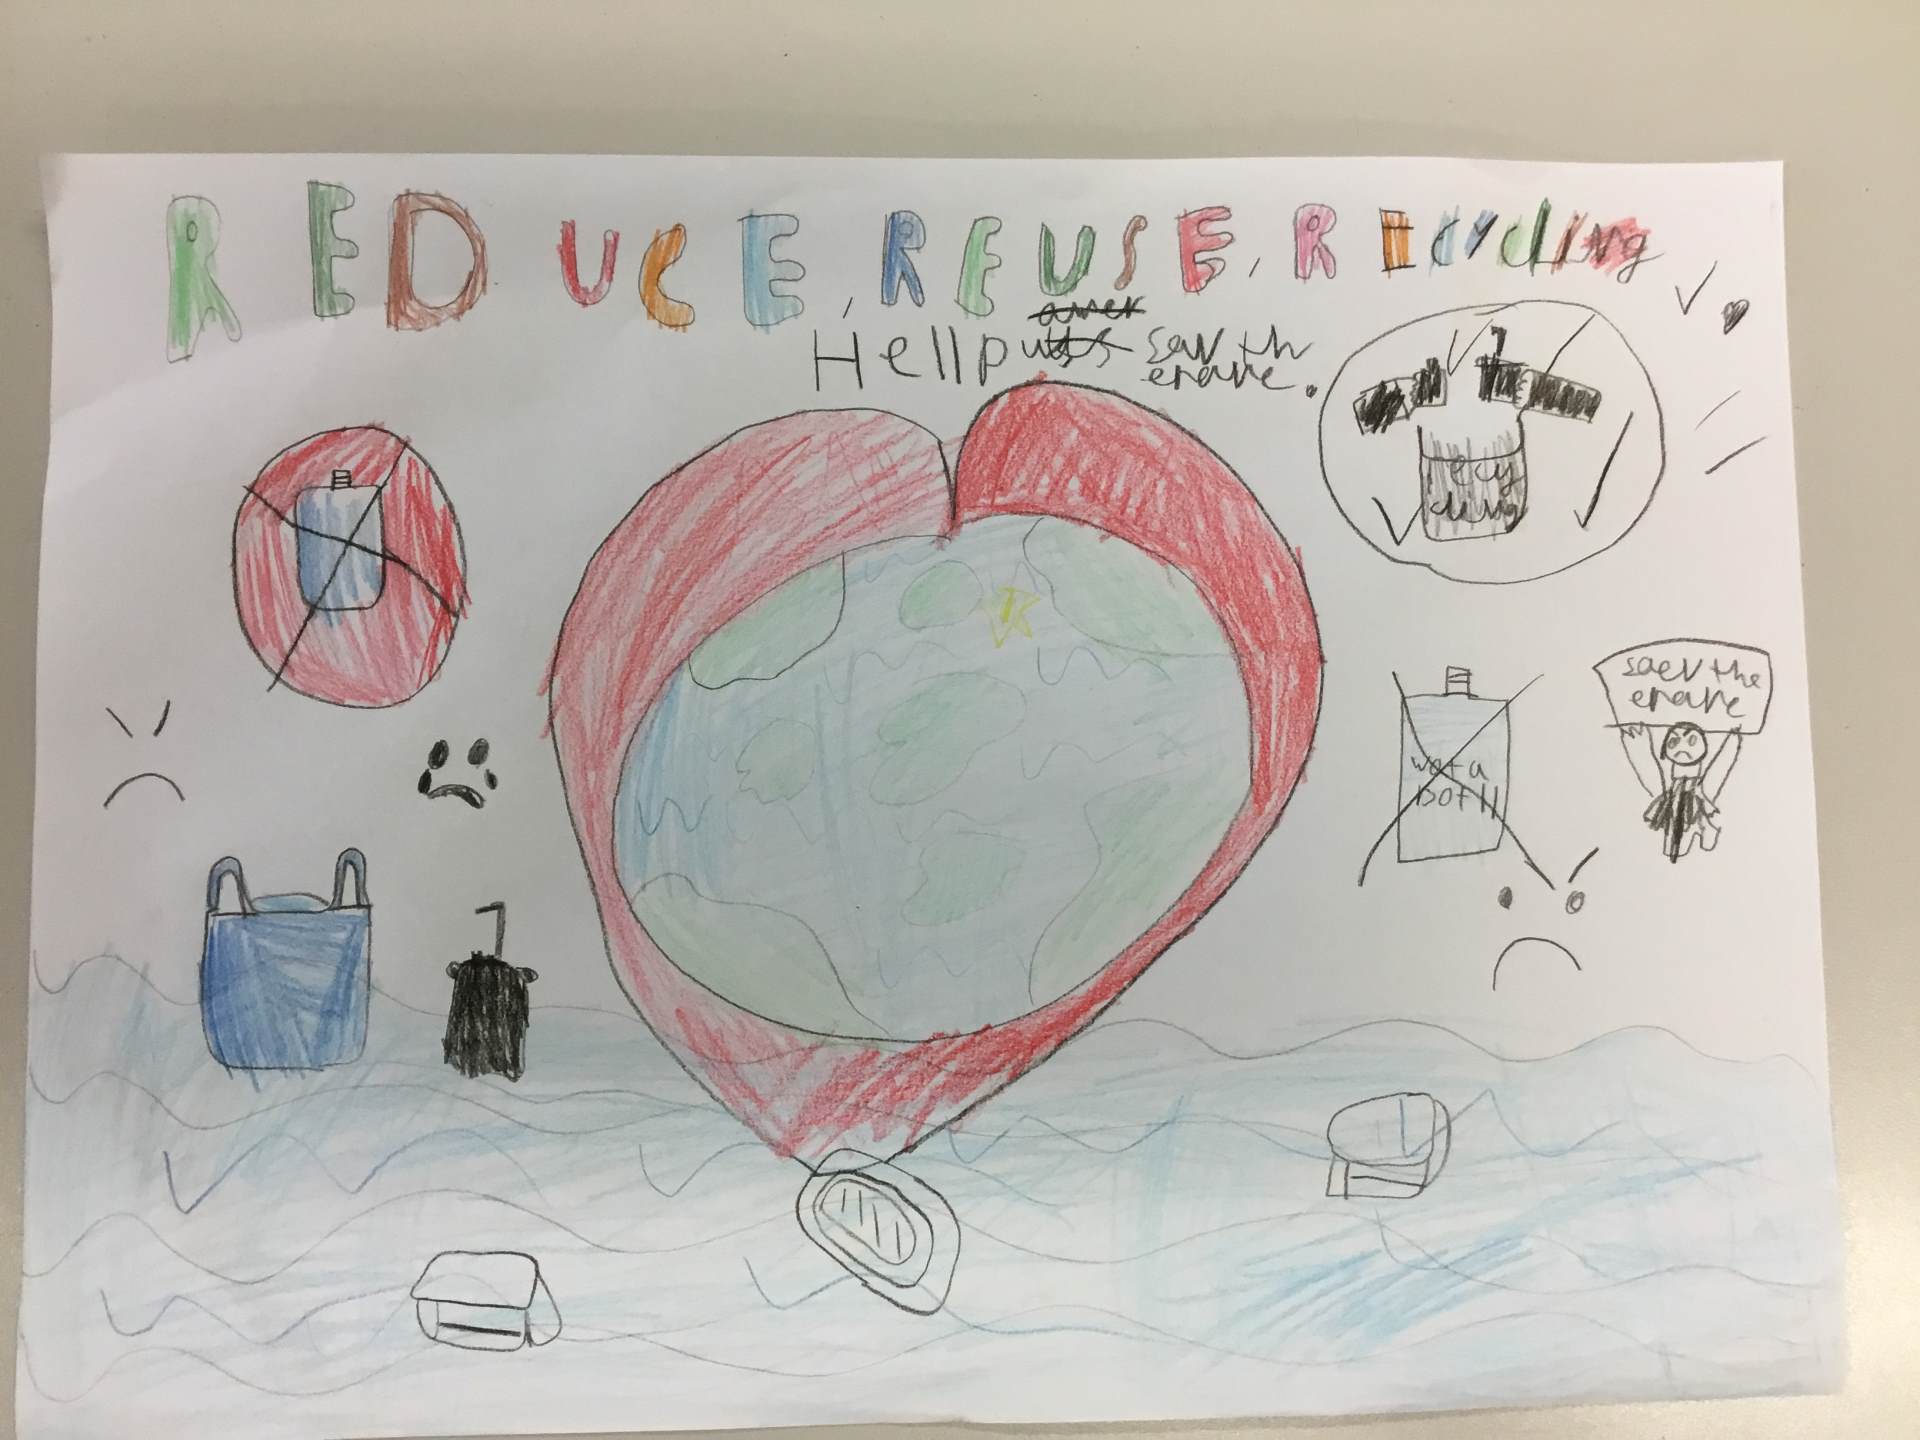 REDUCE, REUSE, REcycling
Hellp us sav th
erave.
ecy
cling
saev the
erave
wota
botll